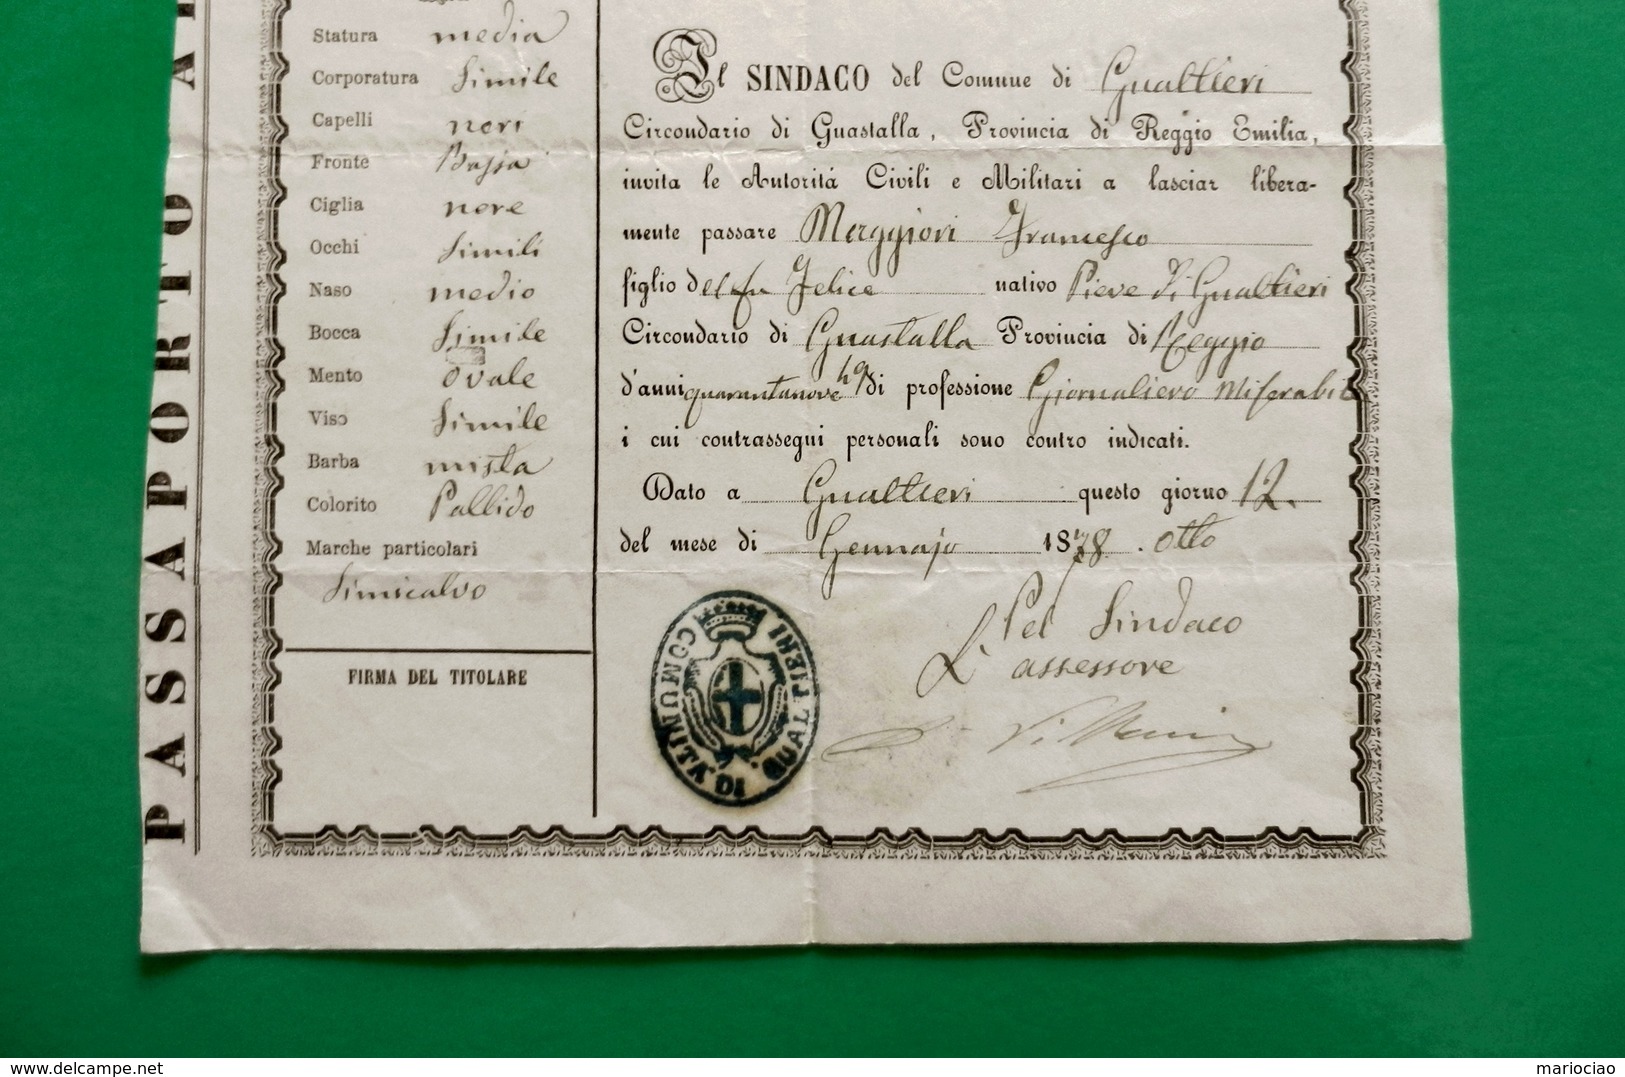 PASSAPORTO A
Statura media
Corporatura Simile
Capelli neri
Fronte Bassa
Ciglia nere
Occhi Simili
Naso medio
Bocca Simile
Mento Ovale
Viso Simile
Barba mista
Colorito Pallido
Marche particolari
Simicalvo
FIRMA DEL TITOLARE
Il SINDACO del Comune di Gualtieri
Circondario di Guastalla, Provincia di Reggio Emilia,
invita le Autoritá Civili e Militari a lasciar libera-
mente passare Merggiori Francesco
figlio del fu Felice nativo Pieve di Gualtieri
Circondario di Guastalla Provincia di Reggio
d'anni quarantanove 49 di professione Giornaliero Miserabile
i cui contrassegni personali sono contro indicati.
Dato a Gualtieri questo giorno 12.
del mese di Gennajo 1878. otto
Pel Sindaco
L'assessore
COMUNITÀ DI GUALTIERI
delcampe.net
mariociao